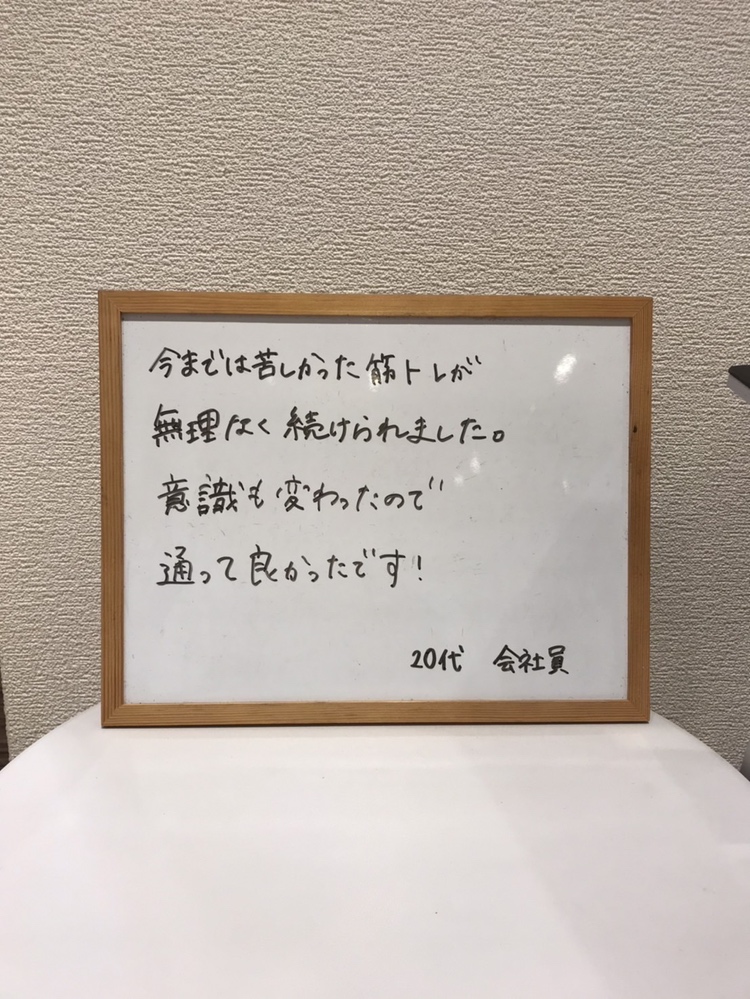 今までは苦しかった筋トレが
無理なく続けられました。
意識も変わったので
通って良かったです!
20代 会社員